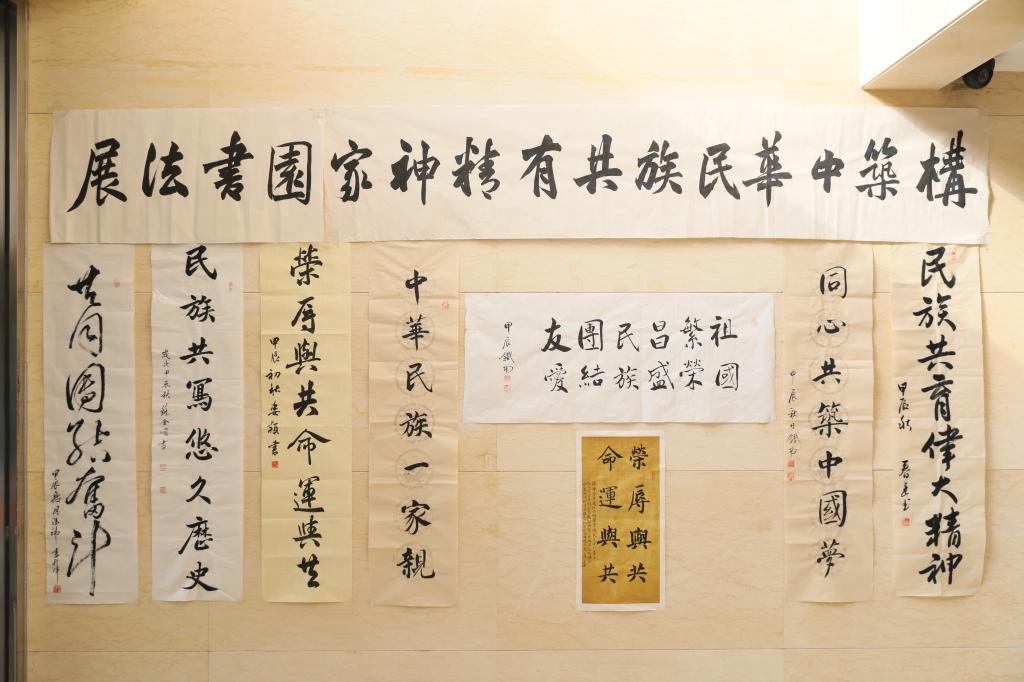 構築中華民族共有精神家園書法展
民族共育偉大精神
甲辰秋
同心共築中國夢
甲辰秋日
祖國
繁榮
昌盛
民族
團結
友愛
甲辰
榮辱與共
命運與共
中華民族一家親
榮辱與共命運與共
甲辰初秋
民族共寫悠久歷史
歲次甲辰秋
共同團結奮斗